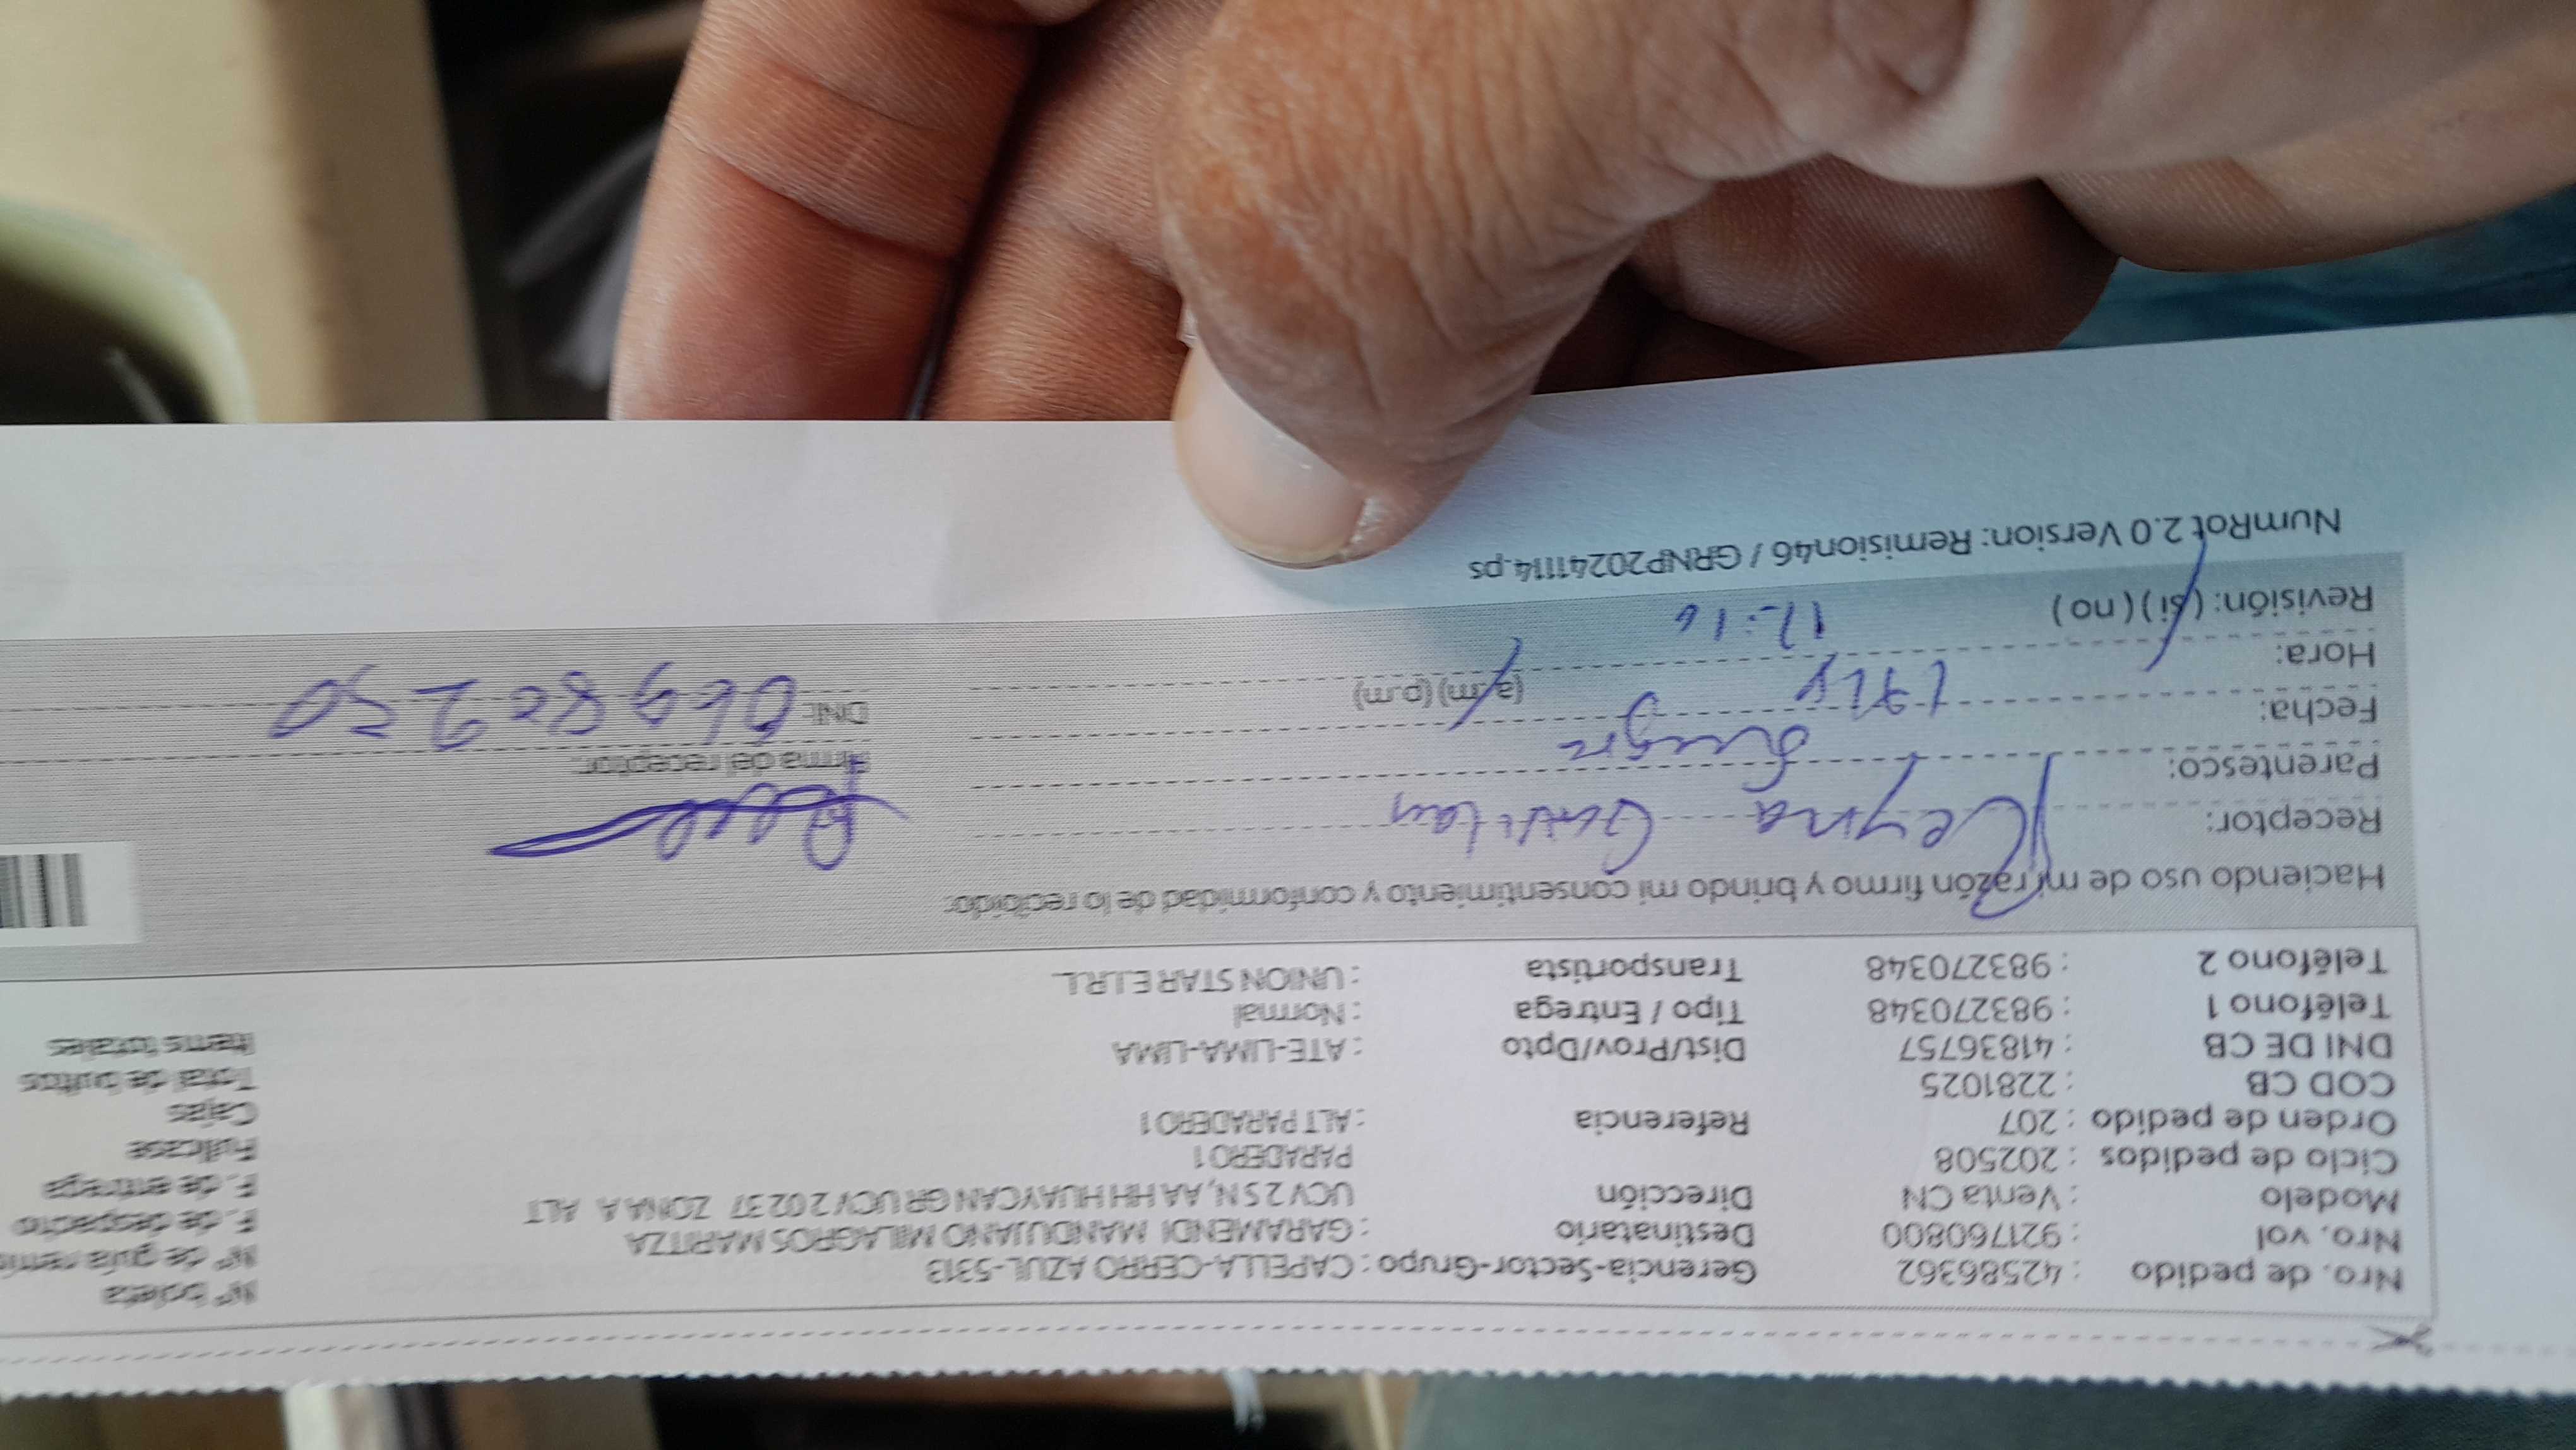 Nro. de pedido : 42586362 Gerencia-Sector-Grupo : CAPELLA-CERRO AZUL-5313 N° boleta
Nro. vol : 921760800 Destinatario : GARAMENDI MANDUJANO MILAGROS MARITZA N° de guía remi
Modelo : Venta CN Dirección UCV 2 S N, AA HH HUAYCAN GR UCV 2 0237 ZONA A ALT F. de despacho
Ciclo de pedidos : 202508 PARADERO 1 F. de entrega
Orden de pedido : 207 Referencia : ALT PARADERO 1 Fullcase
COD CB : 2281025 Cajas
DNI DE CB : 41836757 Dist/Prov/Dpto : ATE-LIMA-LIMA Total de bultos
Teléfono 1 : 983270348 Tipo / Entrega : Normal Items totales
Teléfono 2 : 983270348 Transportista : UNION STAR E.I.R.L.
Haciendo uso de mi razón firmo y brindo mi consentimiento y conformidad de lo recibido:
Receptor: Reyna
Parentesco: Suegra Firma del receptor:
Fecha: DNI:
Hora: 12:16 (a.m) (p.m)
Revisión: (si) (no)
NumRot 2.0 Version: Remision46 / GRNP20241114.ps